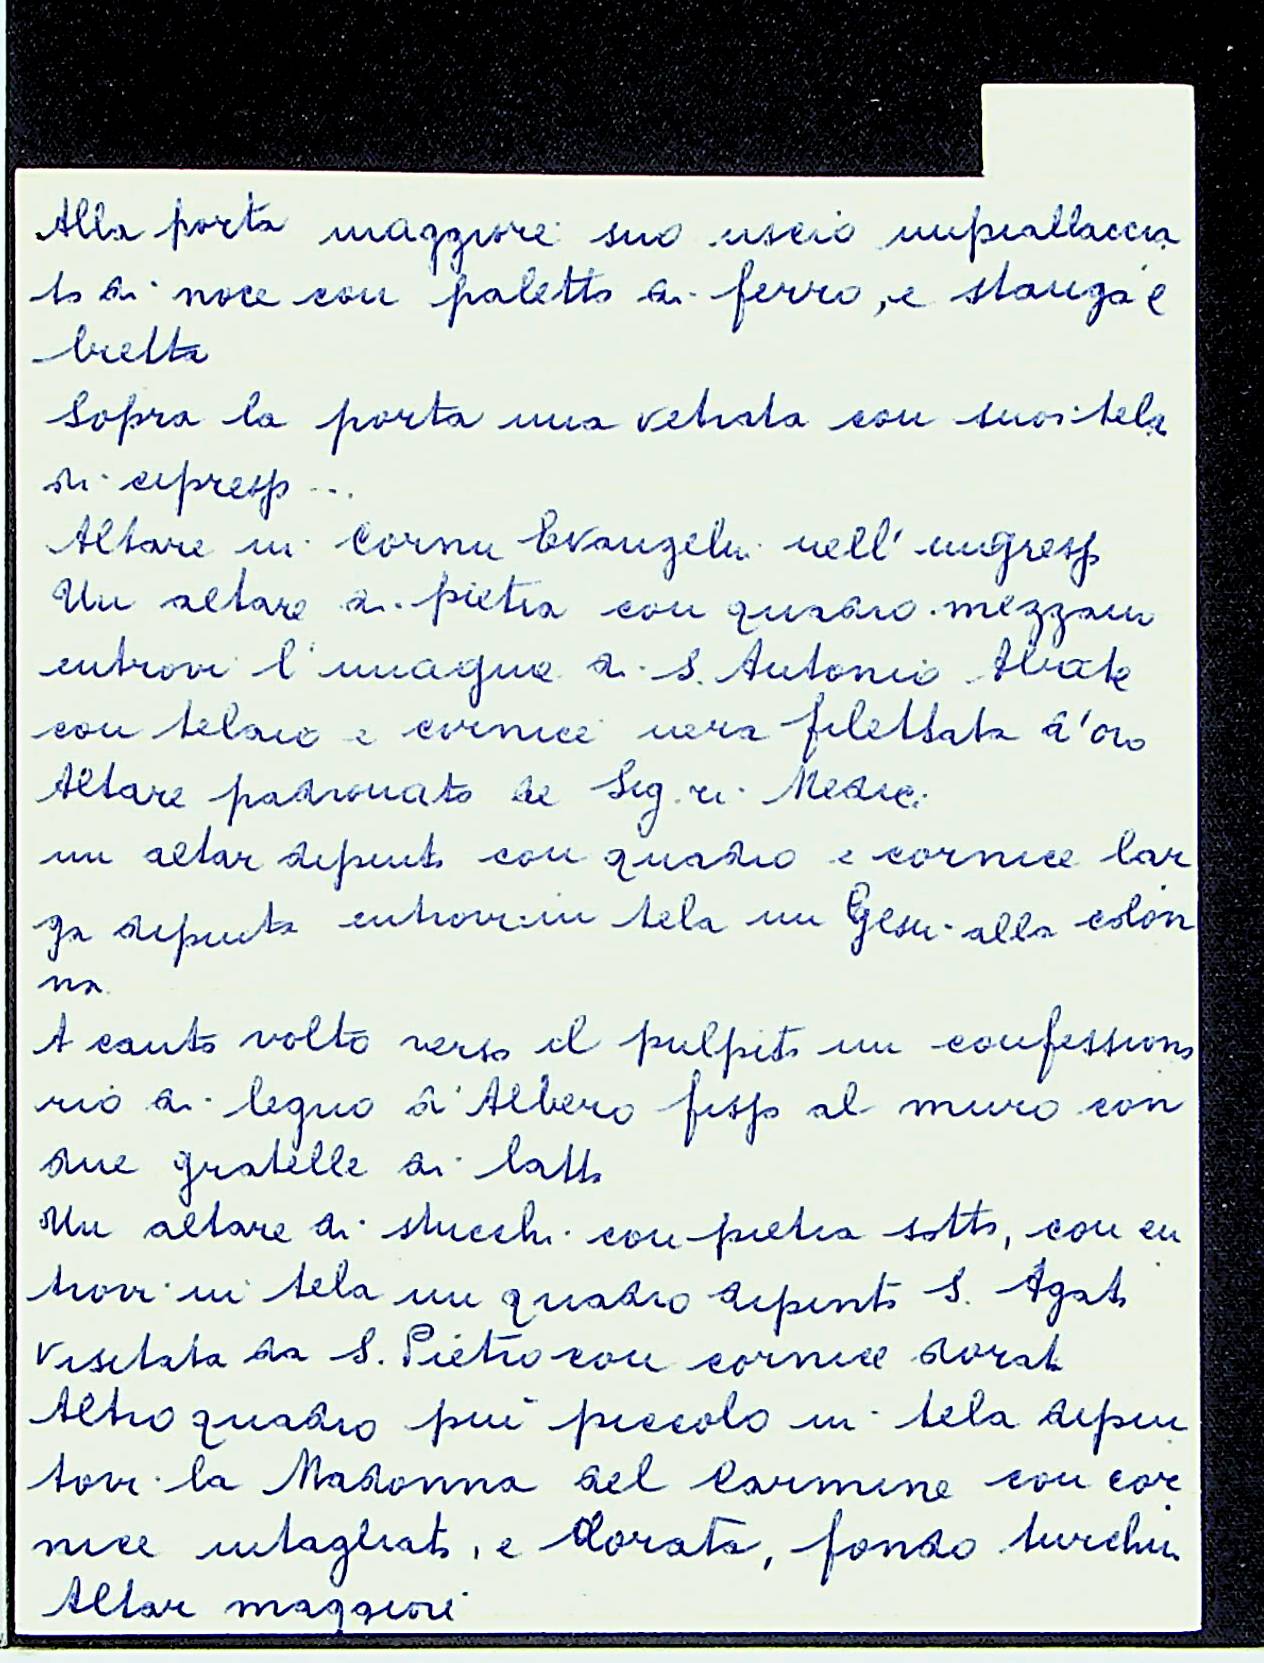 Alla porta maggiore suo uscio impiallaccia
to di noce con paletto di ferro, e stanga e
bietta
Sopra la porta una vetrata con suoi tela
di cipresso ...
Altare in Cornu Evangeli nell' ingresso
Un altare di pietra con quadro mezzano
entrovi l' imagine di S. Antonio Abate
con telaio e cornice nera filettata d'oro
Altare padronato de Sig.ri Medici
un altar dipinto con quadro e cornice lar
ga dipinta entrovi in tela un Gesu alla colon
na
A canto volto verso il pulpito un confessiona
rio di legno d'Albero fisso al muro con
due gratelle di latta
Un altare di stucchi con pietra sotto, con en
trovi in tela un quadro dipinto S. Agata
visitata da S. Pietro con cornice dorata
Altro quadro più piccolo in tela dipin
tovi la Madonna del Carmine con cor
nice intagliata, e dorata, fondo turchin
Altar maggiore